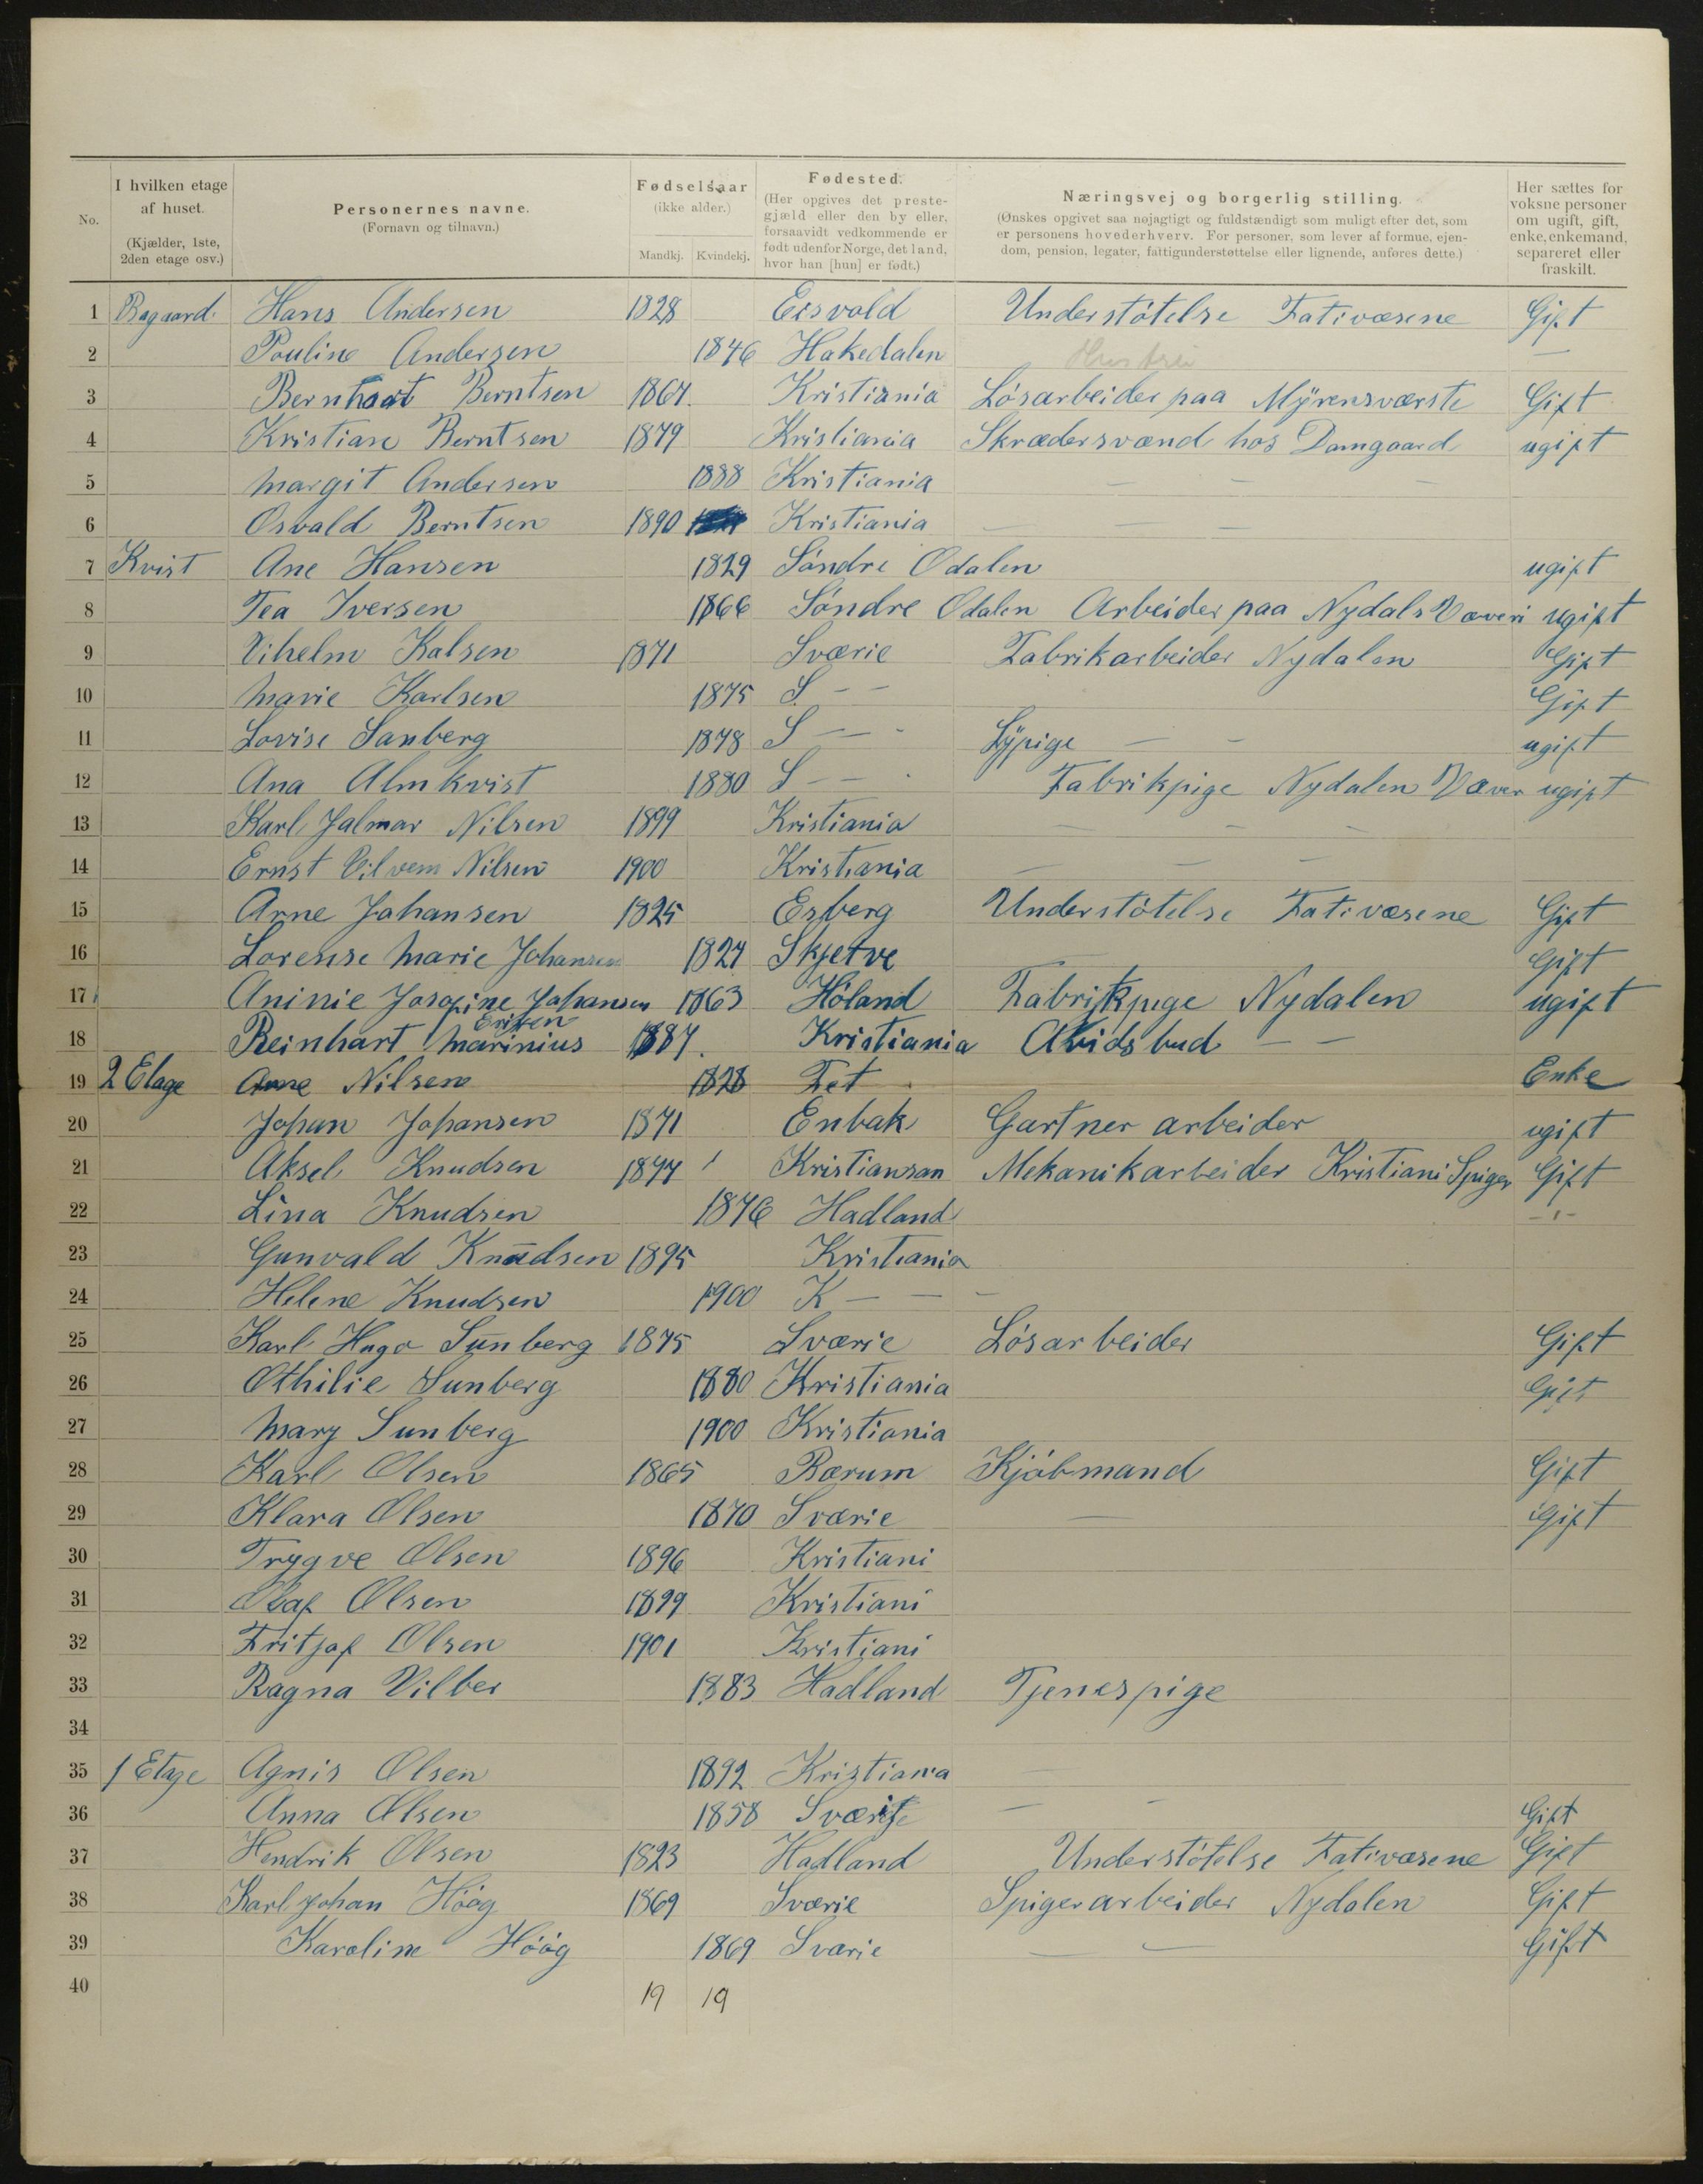 No.
I hvilken etage af huset. (Kjælder, 1ste, 2den etage osv.)
Personernes navne. (Fornavn og tilnavn.)
Fødselsaar (ikke alder.) Mandkj. Kvindekj.
Fødested. (Her opgives det prestegjæld eller den by eller, forsaavidt vedkommende er født udenfor Norge, det land, hvor han [hun] er født.)
Næringsvej og borgerlig stilling. (Ønskes opgivet saa nøjagtigt og fuldstændigt som muligt efter det, som er personens hovederhverv. For personer, som lever af formue, ejendom, pension, legater, fattigunderstøttelse eller lignende, anføres dette.)
Her sættes for voksne personer om ugift, gift, enke, enkemand, separeret eller fraskilt.
1 Bagaard. Hans Andersen 1828 Eisvold Understötelse Fativæsene Gift
2 Pouline Andersen 1846 Hakedalen Hustru —
3 Bernhart Berntsen 1867. Kristiania Lösarbeider paa Myrensværste Gift
4 Kristian Berntsen 1879 Kristiania Skrædersvænd hos Damgaard ugift
5 Margit Andersen 1888 Kristiania — — —
6 Osvald Berntsen 1890 Kristiania — — —
7 Kvist Ane Hansen 1829 Söndre Odalen ugift
8 Tea Iversen 1866 Söndre Odalen Arbeider paa Nydals Væveri ugift
9 Vihelm Kalsen 1871 Sværie Fabrikarbeider Nydalen Gift
10 Marie Karlsen 1875 S – – Gift
11 Lovise Sanberg 1878 S – – Sypige — – ugift
12 Ana Almkvist 1880 S – – Fabrikpige Nydalen Væver ugift
13 Karl Jalmar Nilsen 1899 Kristiania — – –
14 Ernst Vilvem Nilsen 1900 Kristiania — — –
15 Arne Johansen 1825 Esberg Understötelse Fativæsene Gift
16 Lorense Marie Johansen 1827 Skjetve Gift
17 Aninie Josofine Johansen 1863 Höland Fabrikpige Nydalen ugift
Eriksen
18 Reinhart Marinius 1887. Kristiania Avidsbud – –
19 2 Etage Anne Nilsen 1828 Fet Enke
20 Johan Johansen 1871 Enbak Gartner arbeider ugift
21 Aksel Knudsen 1877 Kristiansan Mekanikarbeider Kristiani Spiger Gift
22 Lina Knudsen 1876 Hadland –"–
23 Gunvald Knudsen 1895 Kristiania
24 Helene Knudsen 1900 K — — –
25 Karl Hugo Sunberg 1875 Sværie Lösarbeider Gift
26 Othilie Sunberg 1880 Kristiania Gift
27 Mary Sunberg 1900 Kristiania
28 Karl Olsen 1865 Bærum Kjöbmand Gift
29 Klara Olsen 1870 Sværie — Gift
30 Trygve Olsen 1896 Kristiani
31 Olaf Olsen 1899 Kristiani
32 Fritjof Olsen 1901 Kristiani
33 Ragna Vilber 1883 Hadland Tjenespige
34
35 1 Etage Agnis Olsen 1892 Kristiania —
36 Anna Olsen 1858 Sværie — – Gift
37 Hendrik Olsen 1823 Hadland Understötelse Fativæsene Gift
38 Karl Johan Höög 1869 Sværie Spigerarbeider Nydalen Gift
39 Karoline Höög 1869 Sværie — — Gift
40
19 19